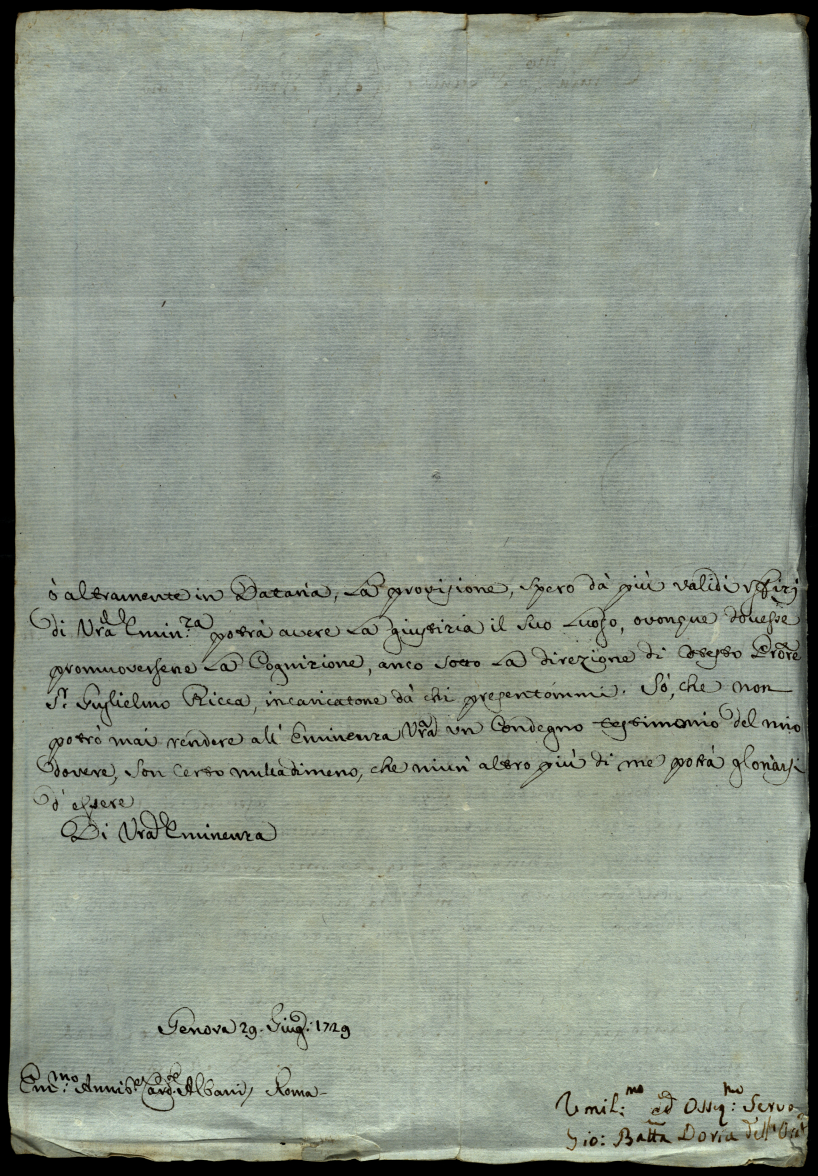 ò altramente in Dataria, La provisione, spero dà più validi uffizi
di Vrã Emin:za potrà avere La giustizia il suo Luogo, ovonque dovesse
promuoversene La Cognizione, anco sotto La direzione di desso
Sr. Guglielmo Ricca, incaricatone dà chi presentommi. Sò, che non
potrò mai rendere all' Eminenza Vrã un Condegno testimonio del mio
dovere, son certo nulladimeno, che niun' altro più di me potrà gloriarsi
d' essere
Di Vrã Eminenza
Genova 29. Giug.: 1729
Em:mo Annib.e Card.e Albani, Roma
Umil:mo ed Osseq:mo Servo
Gio: Batta Doria dell'